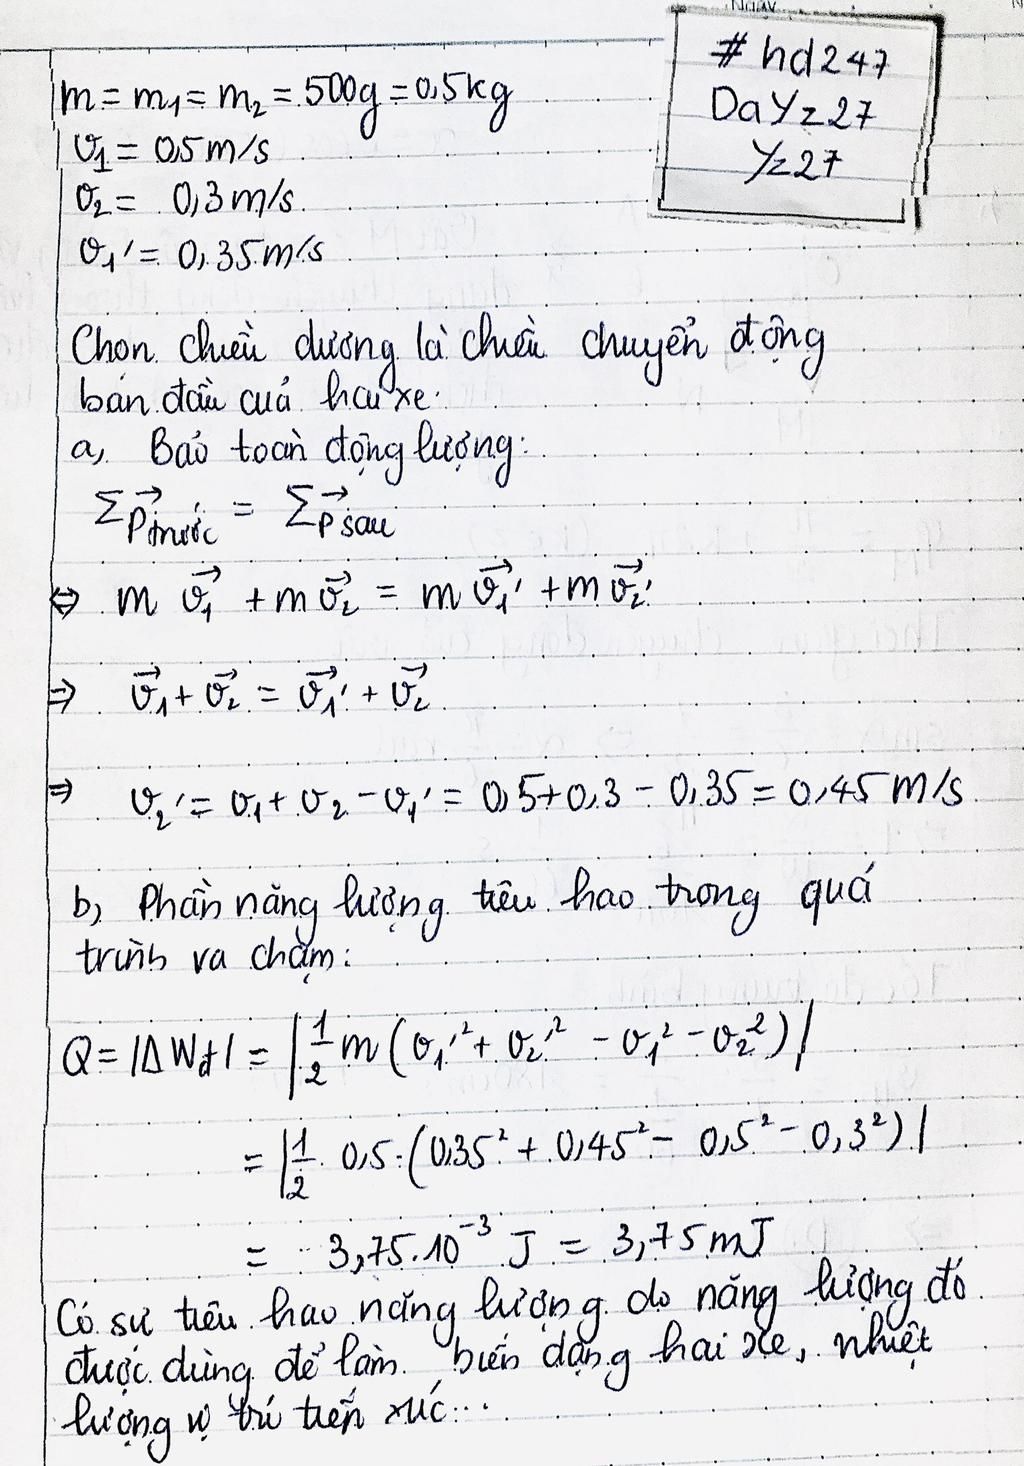 Ngày
#hd247
DaYz27
Yz27
m = m₁ = m₂ = 500g = 0,5kg
v₁ = 0,5 m/s
v₂ = 0,3 m/s
v₁' = 0,35 m/s
Chọn chiều dương là chiều chuyển động
ban đầu của hai xe.
a, Bảo toàn động lượng:
Σp⃗trước = Σp⃗sau
⇔ m v⃗₁ + m v⃗₂ = m v⃗₁' + m v⃗₂'
⇒ v⃗₁ + v⃗₂ = v⃗₁' + v⃗₂
⇒ v₂' = v₁ + v₂ - v₁' = 0,5 + 0,3 - 0,35 = 0,45 m/s
b, Phần năng lượng tiêu hao trong quá
trình va chạm:
Q = |ΔWđ| = |1/2 m (v₁'² + v₂'² - v₁² - v₂²)|
= |1/2 . 0,5 . (0,35² + 0,45² - 0,5² - 0,3²)|
= 3,75.10⁻³ J = 3,75 mJ
Có sự tiêu hao năng lượng do năng lượng đó
được dùng để làm biến dạng hai xe, nhiệt
lượng vị trí tiếp xúc...